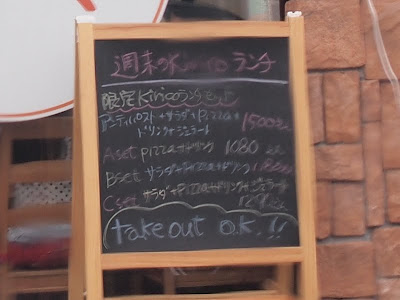 週末のKiricoランチ
限定Kiricoランチセット
アンティパスト+サラダ+Pizza+
ドリンク+ジェラート 1500
Aset pizza+ドリンク 1080
Bset サラダ+Pizza+ドリンク
Cset サラダ+Pizza+ドリンク+ジェラート
take out o.k.!!